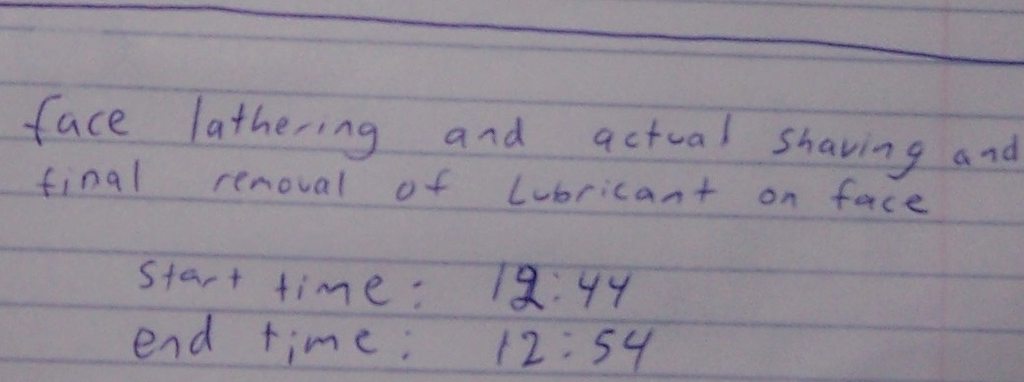 face lathering and actual shaving and
final removal of Lubricant on face
start time: 12:44
end time: 12:54